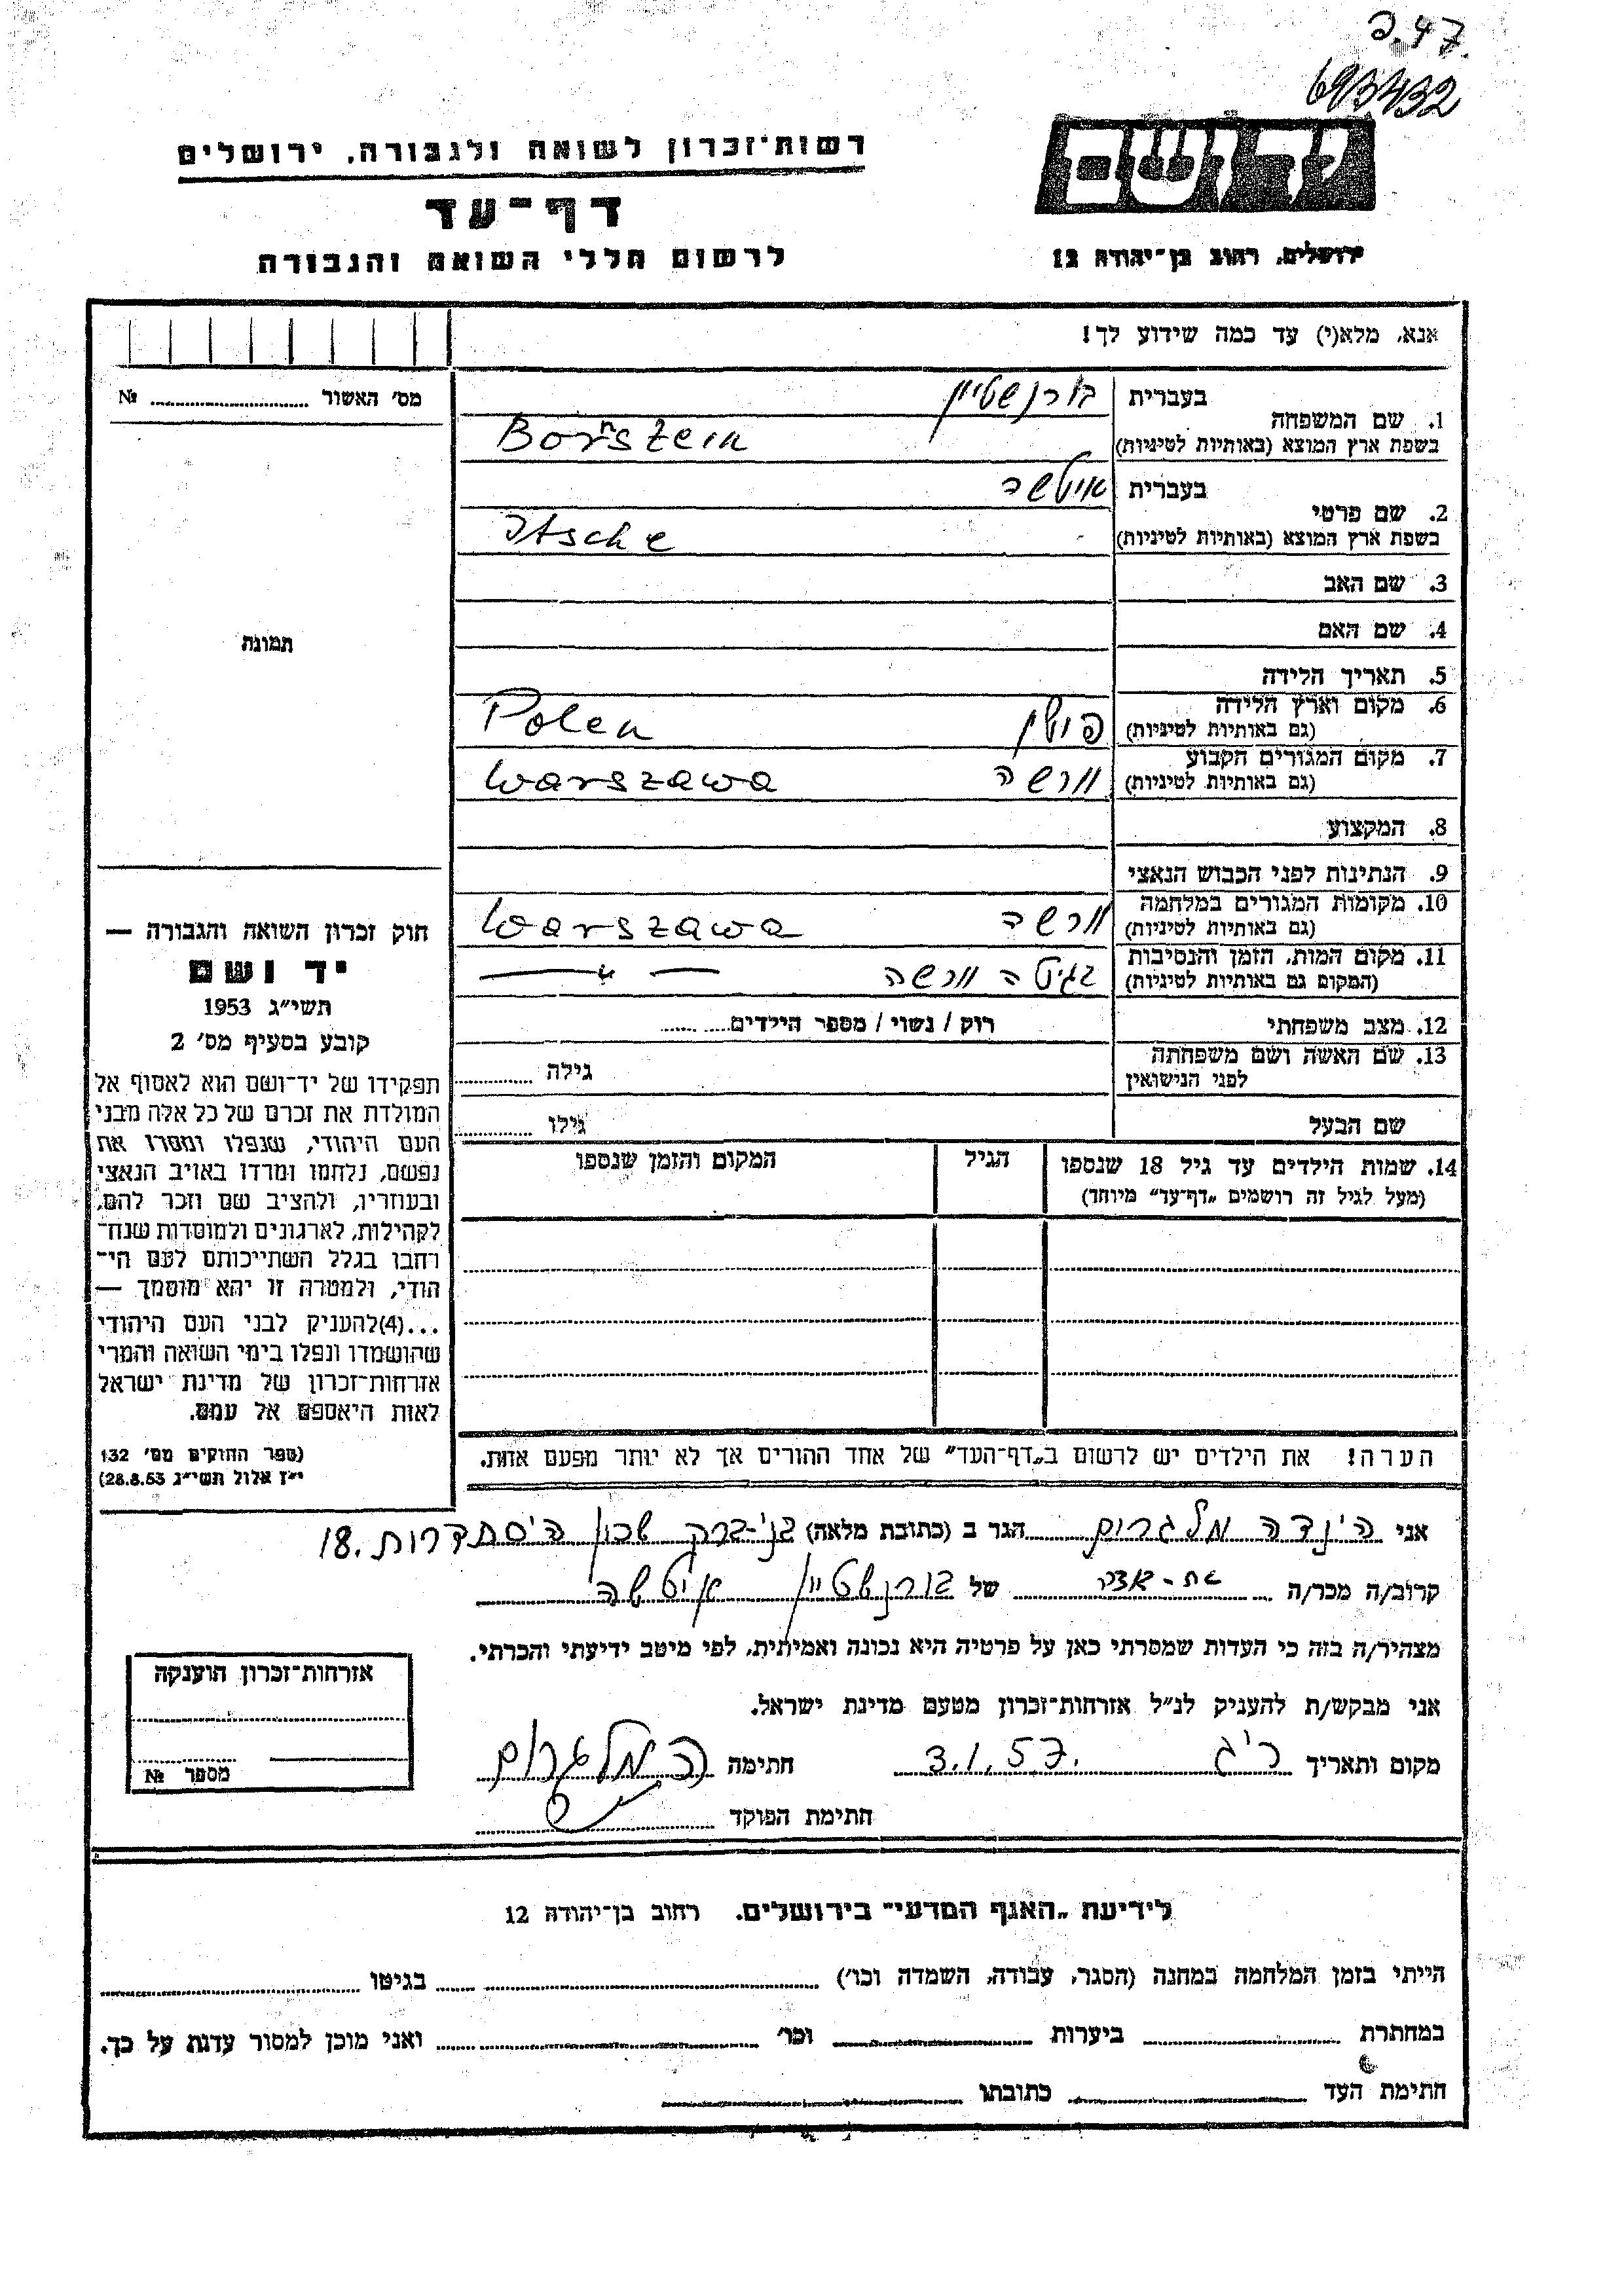 כ.47.
693432
רשות־זכרון לשואה ולגבורה, ירושלים
יד ושם
דף־עד
לרשום חללי השואה והגבורה
ירושלים, רחוב בן־יהודה 12
אנא, מלא(י) עד כמה שידוע לך!
מס' האשור № 
1. שם המשפחה
בעברית בורנשטיין
בשפת ארץ המוצא (באותיות לטיניות) Bornsztein
2. שם פרטי
בעברית איטשה
בשפת ארץ המוצא (באותיות לטיניות) Itsche
3. שם האב
4. שם האם
תמונה
5. תאריך הלידה
6. מקום וארץ הלידה
(גם באותיות לטיניות) פולין Polen
7. מקום המגורים הקבוע
(גם באותיות לטיניות) וורשה Warszawa
8. המקצוע
9. הנתינות לפני הכבוש הנאצי
10. מקומות המגורים במלחמה
(גם באותיות לטיניות) וורשה Warszawa
11. מקום המות, הזמן והנסיבות
(המקום גם באותיות לטיניות) בגיטה וורשה — " —
12. מצב משפחתי רוק / נשוי / מספר הילדים
13. שם האשה ושם משפחתה
לפני הנישואין גילה
שם הבעל גילו
14. שמות הילדים עד גיל 18 שנספו הגיל המקום והזמן שנספו
(מעל לגיל זה רושמים „דף־עד" מיוחד)
חוק זכרון השואה והגבורה —
יד ושם
תשי"ג 1953
קובע בסעיף מס' 2
תפקידו של יד־ושם הוא לאסוף אל
המולדת את זכרם של כל אלה מבני
העם היהודי, שנפלו ומסרו את
נפשם, נלחמו ומרדו באויב הנאצי
ובעוזריו, ולהציב שם וזכר להם,
לקהילות, לארגונים ולמוסדות שנח־
רחבו בגלל השתייכותם לעם הי־
הודי, ולמטרה זו יהא מוסמך —
...(4)להעניק לבני העם היהודי
שהושמדו ונפלו בימי השואה והמרי
אזרחות־זכרון של מדינת ישראל
לאות היאספם אל עמם.
(ספר החוקים מס' 132
י"ז אלול תשי"ג 28.8.53)
הערה! את הילדים יש לרשום ב„דף־העד" של אחד ההורים אך לא יותר מפעם אחת.
אני הינדה מלגרום הגר ב (כתובת מלאה) בני־ברק שכון היסתדרות 18.
קרוב/ה מכר/ה של בורנשטיין איטשה
מצהיר/ה בזה כי העדות שמסרתי כאן על פרטיה היא נכונה ואמיתית, לפי מיטב ידיעתי והכרתי.
אני מבקש/ת להעניק לנ"ל אזרחות־זכרון מטעם מדינת ישראל.
מקום ותאריך ר"ג 3.1.57. חתימה ה מלגרום
חתימת הפוקד
אזרחות־זכרון הוענקה
מספר №
לידיעת „האגף המדעי" בירושלים. רחוב בן־יהודה 12
הייתי בזמן המלחמה במחנה (הסגר, עבודה, השמדה וכו') בגיטו
במחתרת ביערות וכו' ואני מוכן למסור עדות על כך.
חתימת העד כתובתו